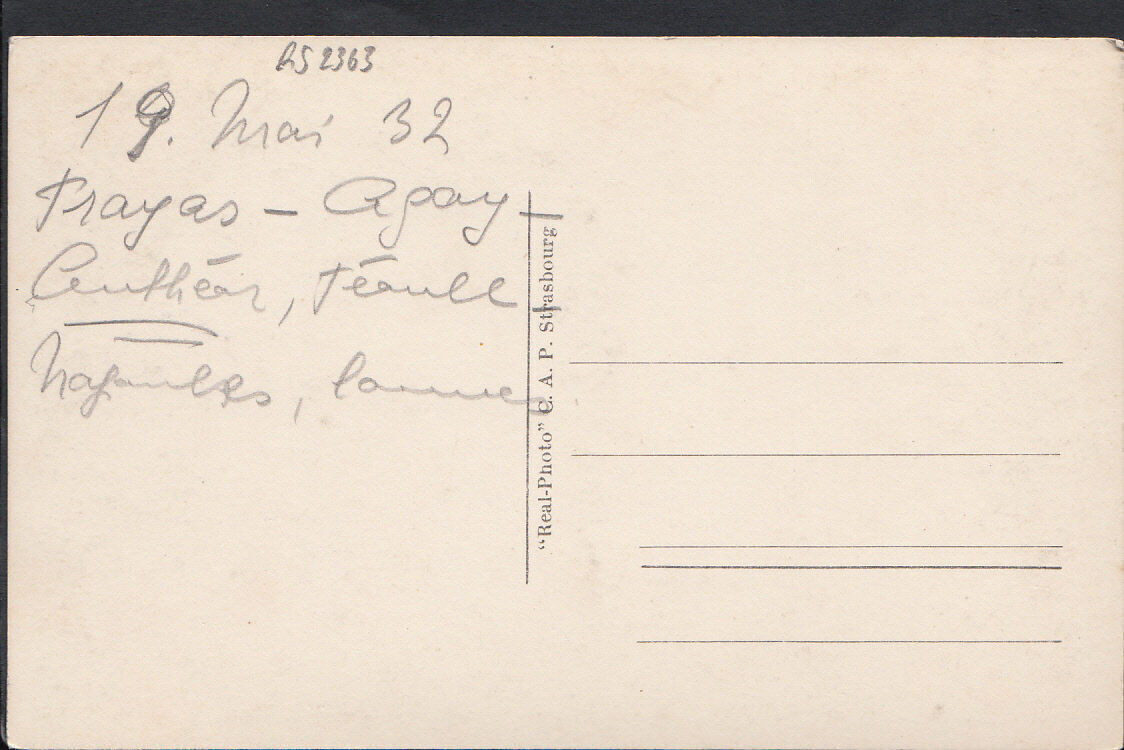 RS 2363
19. Mai 32
Trayas - Agay -
Anthéor, Téoule
Napoule, Cannes
"Real-Photo" C. A. P. Strasbourg